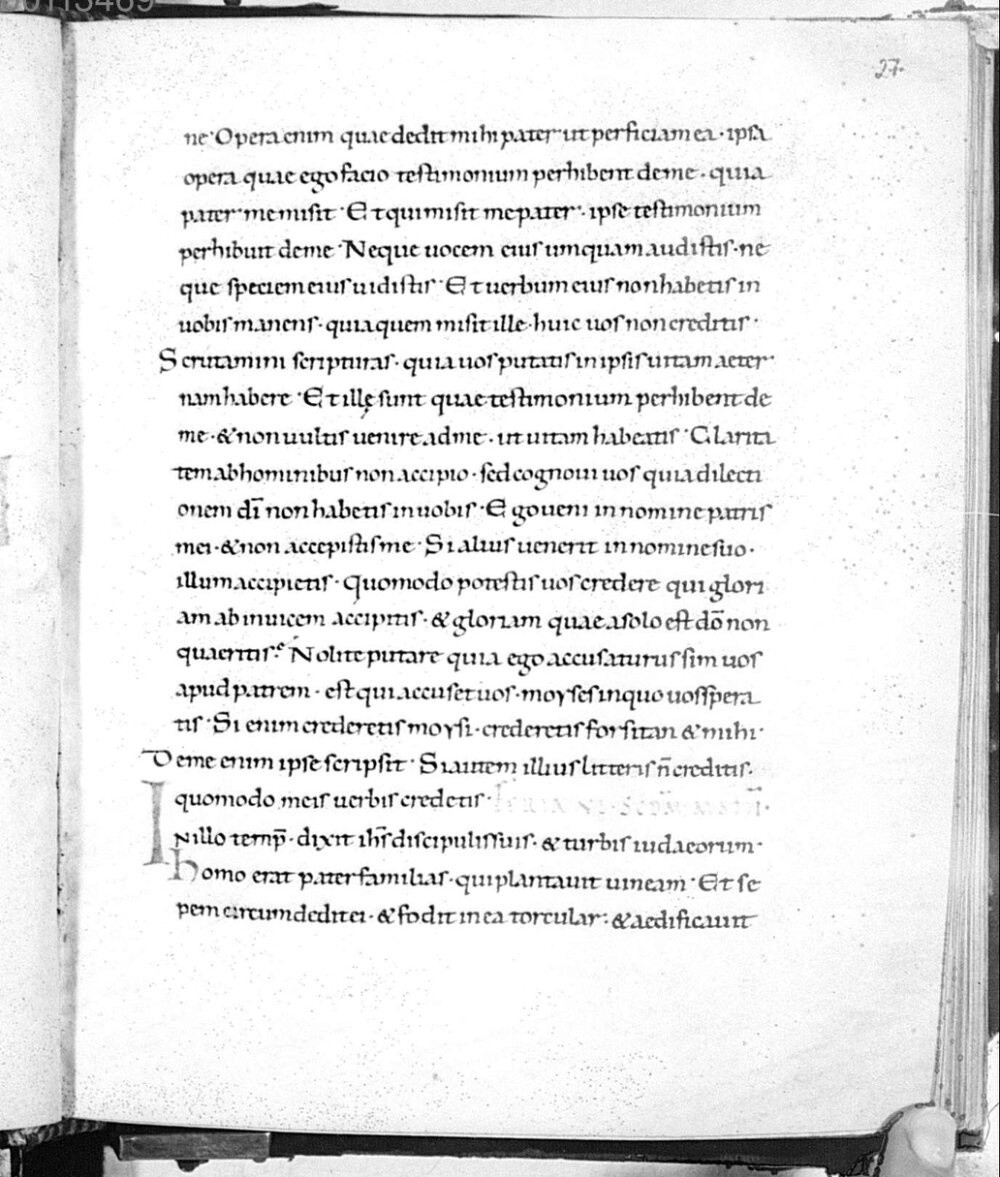 0113489
27.
ne · Opera enim quae dedit mihi pater ut perficiam ea · ipsa
opera quae ego facio testimonium perhibent de me · quia
pater me misit · Et qui misit me pater · ipse testimonium
perhibuit de me · Neque uocem eius umquam audistis · ne
que speciem eius uidistis · Et uerbum eius non habetis in
uobis manens · quia quem misit ille · huic uos non creditis ·
Scrutamini scripturas · quia uos putatis in ipsis uitam aeter
nam habere · Et illę sunt quae testimonium perhibent de
me · & non uultis uenire ad me · ut uitam habeatis · Clarita
tem ab hominibus non accipio · sed cognoui uos quia dilecti
onem dī non habetis in uobis · Ego ueni in nomine patris
mei · & non accepistis me · Si alius uenerit in nomine suo ·
illum accipietis · Quomodo potestis uos credere qui glori
am ab inuicem accipitis · & gloriam quae a solo est dō non
quaeritis · Nolite putare quia ego accusaturus sim uos
apud patrem · est qui accuset uos · moyses in quo uos spera
tis · Si enim crederetis moysi · crederetis forsitan & mihi ·
De me enim ipse scripsit · Si autem illius litteris n̄ creditis ·
quomodo meis uerbis credetis · FERIA VI · SCDM MATH̄ ·
In illo temp̄ · dixit ih̄s discipulis suis · & turbis iudaeorum ·
homo erat pater familias · qui plantauit uineam · Et se
pem circumdedit ei · & fodit in ea torcular · & aedificauit